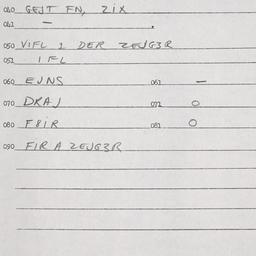 040 GEJT FN, ZIX
041 —
050 VIFL 1 DER ZEJG3R
051 IFL
060 EJNS 061 —
070 DRAJ 071 O
080 F8IR 081 O
090 FIR A ZEJG3R